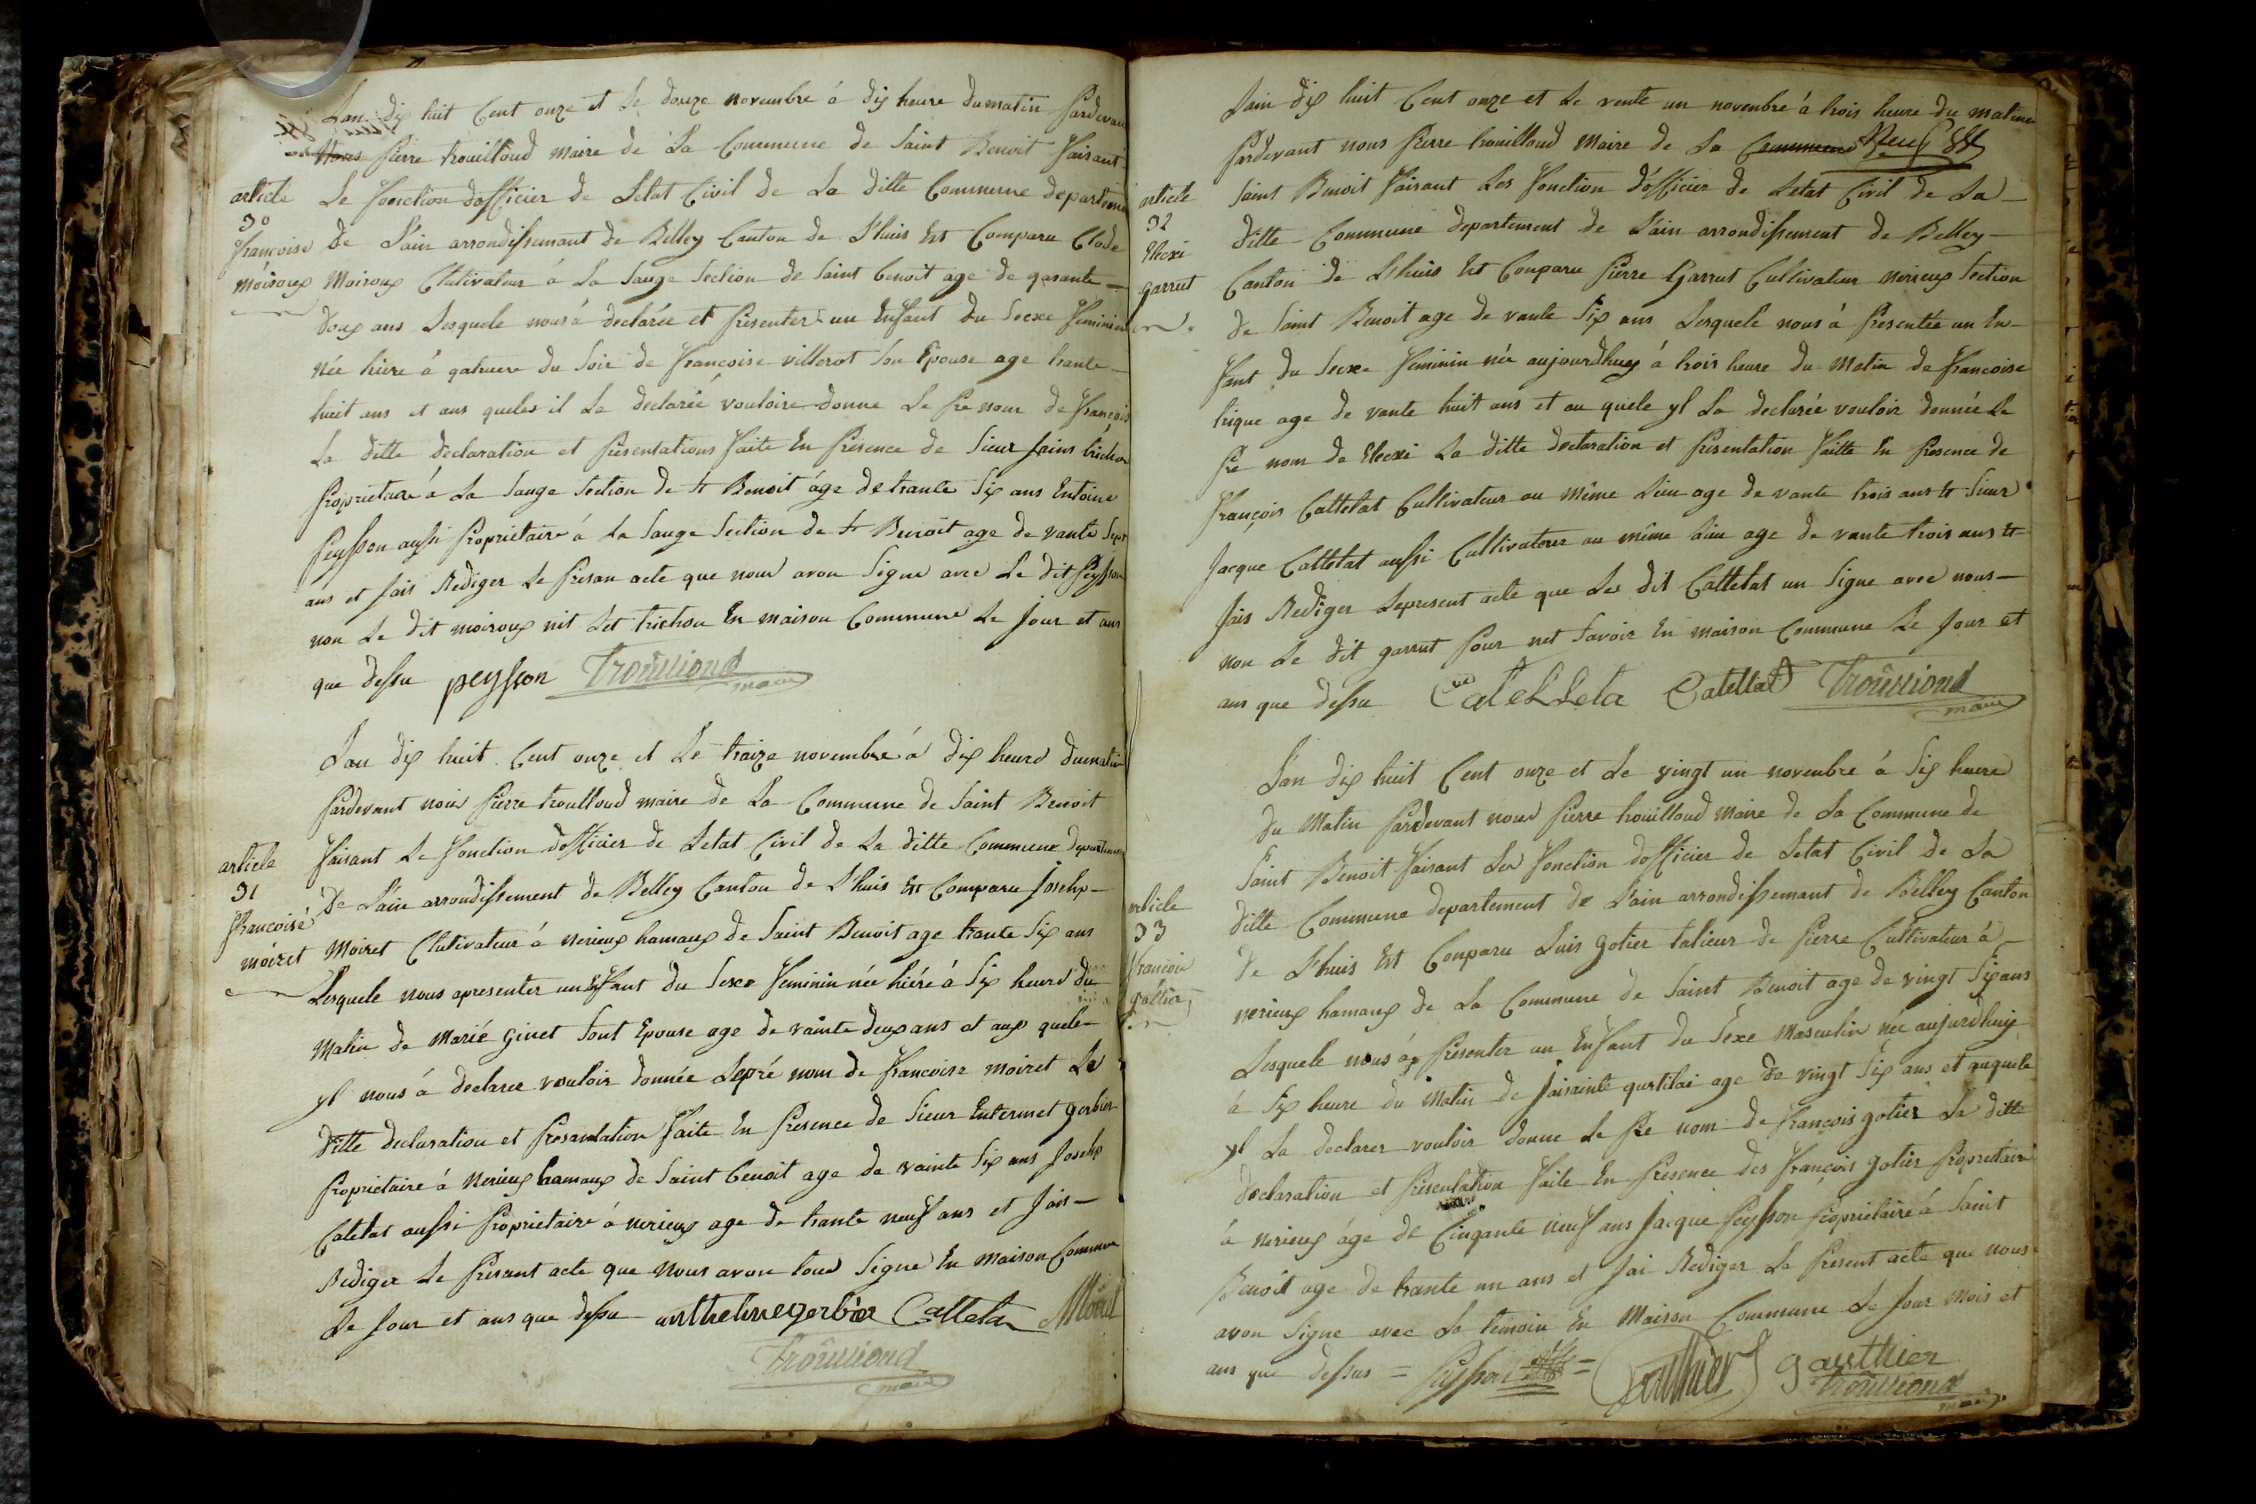 Lan dix huit Cent onze et Le douze novembre à dix heure du matin Pardevan
Nous Pierre trouilloud maire de La Commune de Saint Benoit faisant
article Le fonction d'officier de Letat Civil de La ditte Commune departemen
30
françoise de L'ain arrondissemant de Belley Canton de L'huis Est Comparu Clode
moiroux Moiroux Clutivateur à La Sauge Section de Saint benoit age de qarante
doux ans Lesquele nous à declarée et Presenter un Enfant du Secxe feminien
née hiere à qatruere du Soir de françoise villerot Son Epouse age trante
huit ans et aus queles il La declarée vouloire donne Le Prenom de françois
La ditte declaration et Presentations faite En Presence de Sieur Jains trichon
Proprietaire à La Sauge Section de St Benoit âge de trante Six ans Entoine
Peysson aussi Proprietaire à La Sauge Section de St Benoit age de vante Sept
ans et fais Rediger Le Presan acte que nous avon Signe avec Le dit Peysson
non Le dit moiroux nit Let trichon En maison Commune Le Jour et ans
que dessu peysson Trouilloud
maire
Lan dix huit Cent onze et Le traize novembre à dix heure dumatin
Pardevant nous Pierre troulloud maire de La Commune de Saint Benoit
article faisant Le fonction d'officier de Letat Civil de La ditte Commune departemen
31
francoise De L'ain arrondissement de Belley Canton de L'huis Est Comparu Josehp
moiret Moiret Clutivateur à nerieux hamaux de Saint Benoit age trante Six ans
Lesquele nous apresenter un Enfant du Sexe feminin née hiére à Six heure du
Matin de Marie ginet Sont Epouse age de vainte deux ans et aux quele
yl nous à declaree vouloir donnée Lepré nom de francoise moiret La
ditte declaration et Presantation faite En Presence de Sieur Entermet gerbier
Proprietaire à Nerieux hamaux de Saint benoit age de vainte Six ans Josehp
Catelat aussi Proprietaire à nerieux age de trante neuf ans et fais
Rediger Le Presant acte que nous avon tous Signe En maison Commune
Le Jour et ans que dessu anthelmegerbier Catteta Moiret
Trouilloud
maire
Lain dix huit Cent onze et Le vente un novembre à trois heure du matine
Pardevant nous Pierre trouilloud Maire de La Commune
article Saint Benoit faisant Les fonction d'officier de Letat Civil de La
32
Elecxi ditte Commune departement de Lain arrondissement de Belley
garrut Canton de Lhuis Est Comparu Pierre Garrut Cultivateur nerieux Section
de Saint Benoit age de vante Six ans Lesquele nous à Presentée un En-
fant du Secxe feminin née aujourdhuy à trois heure du Matin de francoise
trique age de vante huit ans et au quele yl La declarée vouloir donnée Le
Pre nom de Elecxi La ditte declaration et Presentation faitte En Presence de
françois Cattelat Cultivateur au même Lieu age de vante trois ans et Sieur
Jacque Cattelat aussi Cultivateur au même Lieu age de vante trois ans et
fais Rediger Lepresent acte que Les dit Cattelat un Signe avec nous
non Le dit garrut Pour net Savoir En maison Commune Le Jour et
ans que dessu Catelat Trouilloud
maire
Lan dix huit Cent onze et Le vingt un novembre à Six heure
du Matin Pardevant nous Pierre trouilloud Maire de La Commune de
Saint Benoit faisant Les fonction d'officier de Letat Civil de La
article ditte Commune departement de Lain arrondissemant de Belley Canton
33
françois de L'huis Est Comparu Luis gotier talieur de Pierre Cultivateur à
gottier nerieux hamaux de La Commune de Saint Benoit age de vingt Six ans
Lesquele nous à Presenter un Enfant du Sexe Masculin née aujardhuy
à Six heure du Matin de age de vingt Six ans et auquele
yl La declarer vouloir donne Le Pre nom de françois gotier La ditte
declaration et Presentation faite En Presence des françois gotier Proprietaire
à nerieux âge de Cinqante neuf ans Jacque Peysson Proprietaire à Saint
Benoit age de trante un ans et fai Rediger Le Present acte que nous
avon Signe avec La temoin En Maison Commune Le Jour Mois et
ans que dessus = Peysson = Gauthier gauthier
Trouilloud
maire